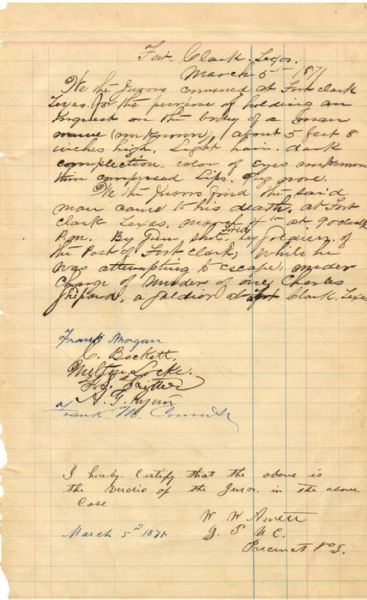 Fort Clark Texas.
March 5th 1871
We the Jurors convened at Fort Clark
Texas for the purpose of holding an
Inquest on the body of a man
name (unknown) about 5 feet 8
inches high, Light hair. dark
complection color of eyes unknown
thin compressed Lips. Big nose.
We the Jurors find the said
man came to his death at Fort
Clark Texas, at 9 oclock
P.m. By Gun shot fired by soldiers of
the Post of Fort Clark, while he
was attempting to escape. under
Charge of Murder of one Charles
Shepard, a soldier at Fort Clark Texas
Frank Morgan
C. Bockett.
Milton Locke.
A. G.
Frank M.
I hereby Certify that the above is
the Verdic of the Juror. in the above
Case
W W Arnett
J. P. U. C.
March 5th 1871.
Precinct No 3.